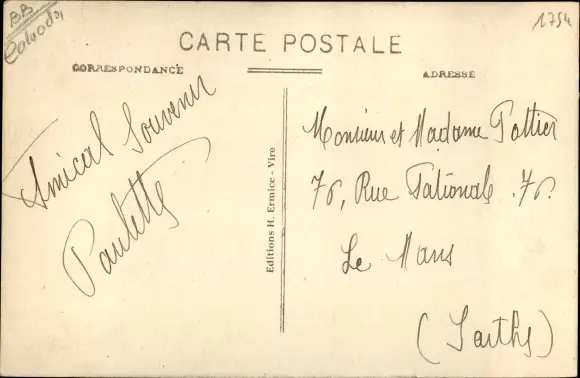 BB
Calvados
1754
CARTE POSTALE
CORRESPONDANCE
ADRESSE
Amical Souvenir
Paulette
Editions H. Ermice - Vire
Monsieur et Madame Pottier
76, Rue Nationale .76.
Le Mans
(Sarthe)